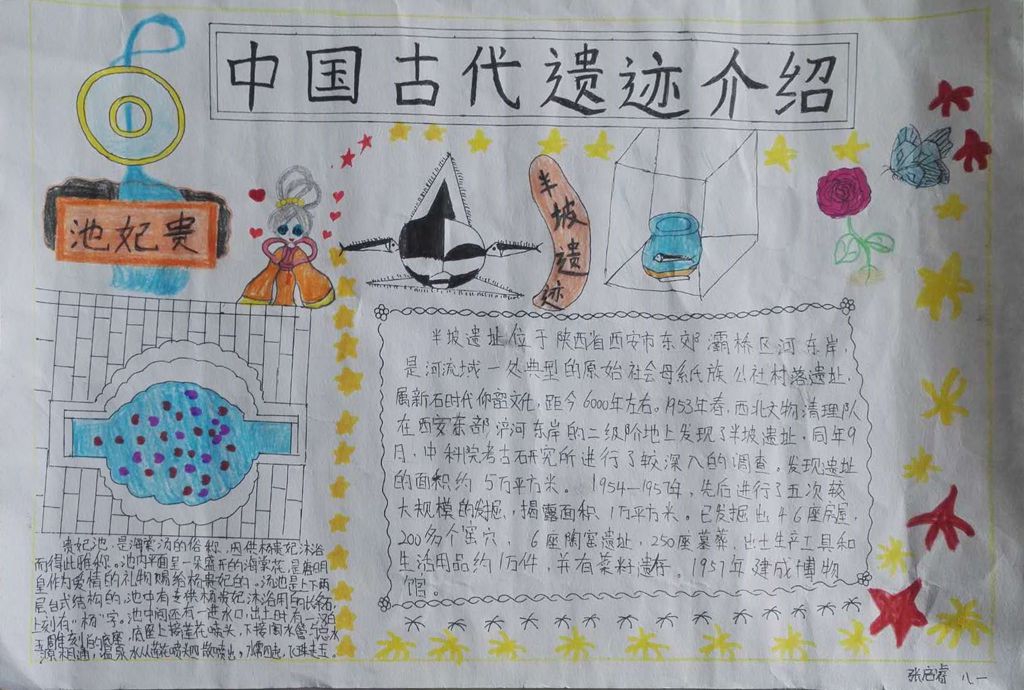 中国古代遗迹介绍
池妃贵
半坡遗迹
半坡遗址位于陕西省西安市东郊灞桥区河东岸,
是河流域一处典型的原始社会母系氏族公社村落遗址,
属新石时代仰韶文化,距今6000年左右。1953年春,西北文物清理队
在西安东部浐河东岸的二级阶地上发现了半坡遗址,同年9
月,中科院考古研究所进行了较深入的调查,发现遗址
的面积约5万平方米。1954—1957年,先后进行了五次较
大规模的发掘,揭露面积1万平方米。已发掘出46座房屋,
200多个窖穴,6座陶窑遗址,250座墓葬,出土生产工具和
生活用品约1万件,并有菜料遗存。1957年建成博物
馆。
贵妃池,是海棠汤的俗称,因供杨贵妃沐浴
而得此雅称。池内平面呈一朵盛开的海棠花,是唐明
皇作为爱情的礼物赐给杨贵妃的。汤池是上下两
层台式结构的,池中有专供杨贵妃沐浴用的
上刻有"杨"字。池中间还有一进水口,出土时有一
底座上接莲花喷头,下接陶水管与总水
源相通,温泉水从莲花喷头四散喷出,飞珠走玉。
张启睿 八一